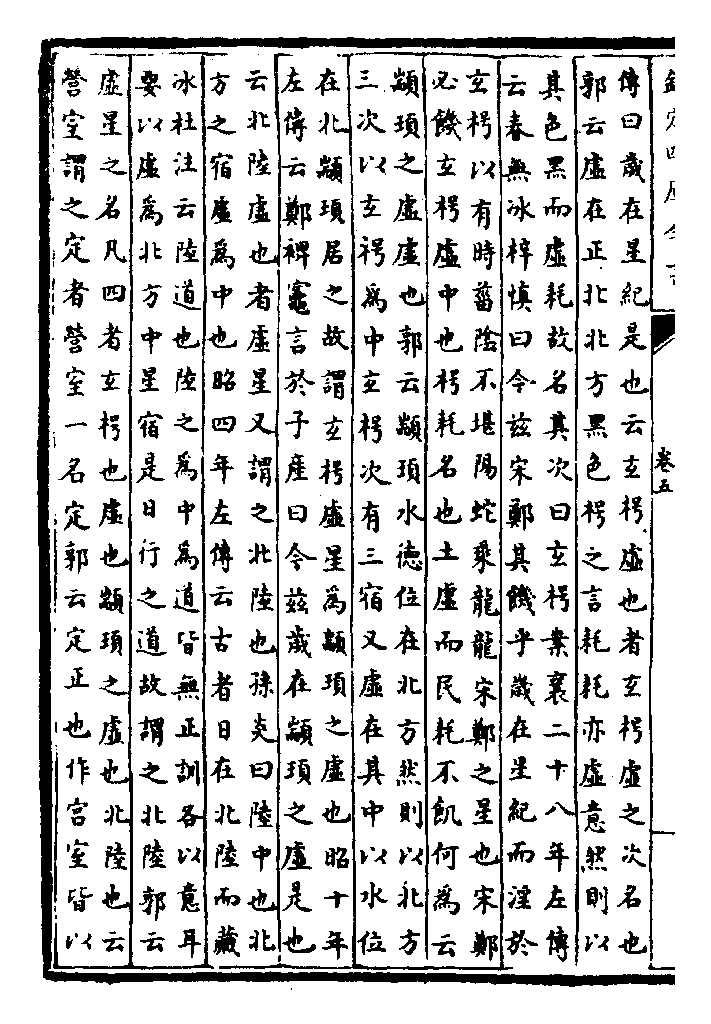 欽定四庫全書
卷五
傳曰歲在星紀是也云玄枵虛也者玄枵虛之次名也
郭云虛在正北北方黑色枵之言耗耗亦虛意然則以
其色黑而虛耗故名其次曰玄枵案襄二十八年左傳
云春無冰梓慎曰今兹宋鄭其饑乎歲在星紀而淫於
玄枵以有時菑陰不堪陽蛇乘龍龍宋鄭之星也宋鄭
必饑玄枵虛中也枵耗名也土虛而民耗不飢何為云
顓頊之虛虛也郭云顓頊水德位在北方然則以北方
三次以玄枵為中玄枵次有三宿又虛在其中以水位
在北顓頊居之故謂玄枵虛星為顓頊之虛也昭十年
左傳云鄭裨竈言於子產曰今兹歲在顓頊之虛是也
云北陸虛也者虛星又謂之北陸也孫炎曰陸中也北
方之宿虛為中也昭四年左傳云古者日在北陸而藏
冰杜注云陸道也陸之為中為道皆無正訓各以意耳
要以虛為北方中星宿是日行之道故謂之北陸郭云
虛星之名凡四者玄枵也虛也顓頊之虛也北陸也云
營室謂之定者營室一名定郭云定正也作宮室皆以